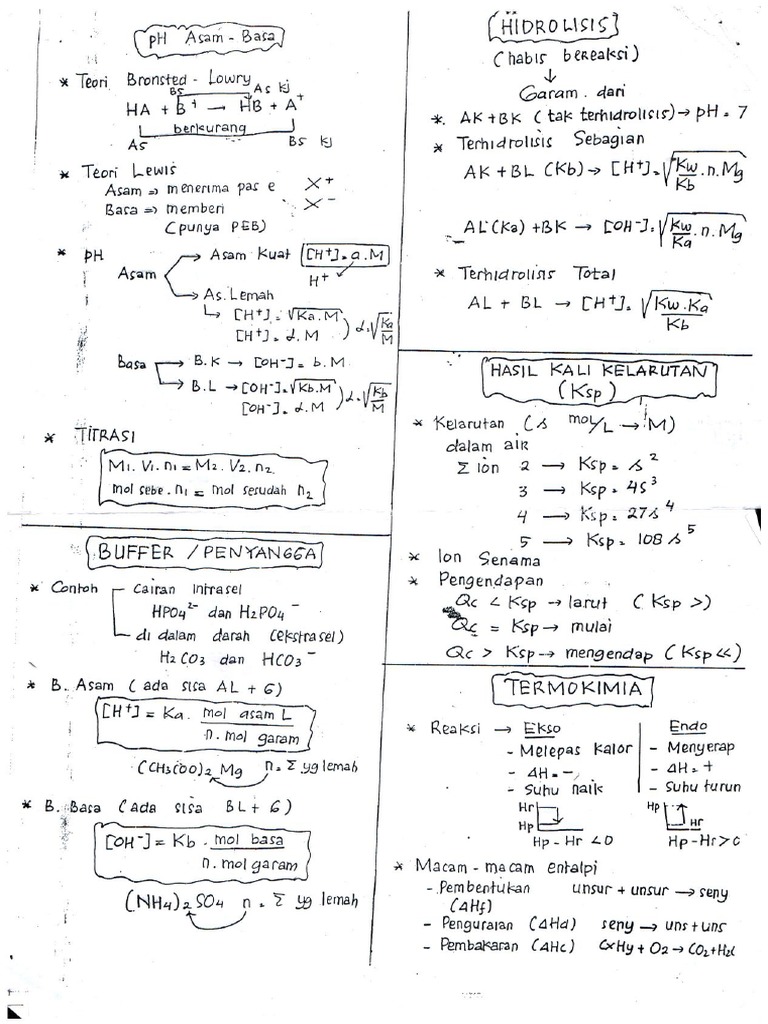 pH Asam - Basa
* Teori Bronsted - Lowry
Bs As kj
HA + B⁺ → HB + A⁺
berkurang
As Bs kj
* Teori Lewis
Asam => menerima pas e X⁺
Basa => memberi X⁻
(punya PEB)
* pH
Asam
→ Asam Kuat [H⁺] = a.M
H⁺
→ As. Lemah
↳ [H⁺] = √Ka.M
[H⁺] = α.M ) α = √Ka/M
Basa → B.K → [OH⁻] = b.M
→ B.L → [OH⁻] = √Kb.M
[OH⁻] = α.M ) α = √Kb/M
* TITRASI
M1. V1. n1 = M2. V2. n2.
mol sebe. n1 = mol sesudah n2
BUFFER / PENYANGGA
* Contoh
cairan intrasel
HPO4²⁻ dan H2PO4⁻
di dalam darah (ekstrasel)
H2CO3 dan HCO3⁻
* B. Asam (ada sisa AL + G)
[H⁺] = Ka. mol asam L / n. mol garam
(CH3COO)2 Mg n = Σ yg lemah
* B. Basa (Ada sisa BL + G)
[OH⁻] = Kb. mol basa / n. mol garam
(NH4)2 SO4 n = Σ yg lemah
[HIDROLISIS]
(habis bereaksi)
↓
Garam dari
*. AK + BK (tak terhidrolisis) → pH = 7
* Terhidrolisis Sebagian
AK + BL (Kb) → [H⁺] = √Kw/Kb . n. Mg
AL (Ka) + BK → [OH⁻] = √Kw/Ka . n. Mg
* Terhidrolisis Total
AL + BL → [H⁺] = √Kw.Ka/Kb
HASIL KALI KELARUTAN
(Ksp)
* Kelarutan (s mol/L → M)
dalam air
Σ ion 2 → Ksp = s²
3 → Ksp = 4s³
4 → Ksp = 27s⁴
5 → Ksp = 108 s⁵
* Ion Senama
* Pengendapan
Qc < Ksp → larut (Ksp >)
Qc = Ksp → mulai
Qc > Ksp → mengendap (Ksp <<)
TERMOKIMIA
* Reaksi → Ekso Endo
- Melepas kalor - Menyerap
- ΔH = - - ΔH = +
- Suhu naik - Suhu turun
Hr Hp
Hp Hr
Hp - Hr < 0 Hp - Hr > 0
* Macam - macam entalpi
- Pembentukan unsur + unsur → seny
(ΔHf)
- Penguraian (ΔHd) seny → uns + uns
- Pembakaran (ΔHc) CxHy + O2 → CO2 + H2O